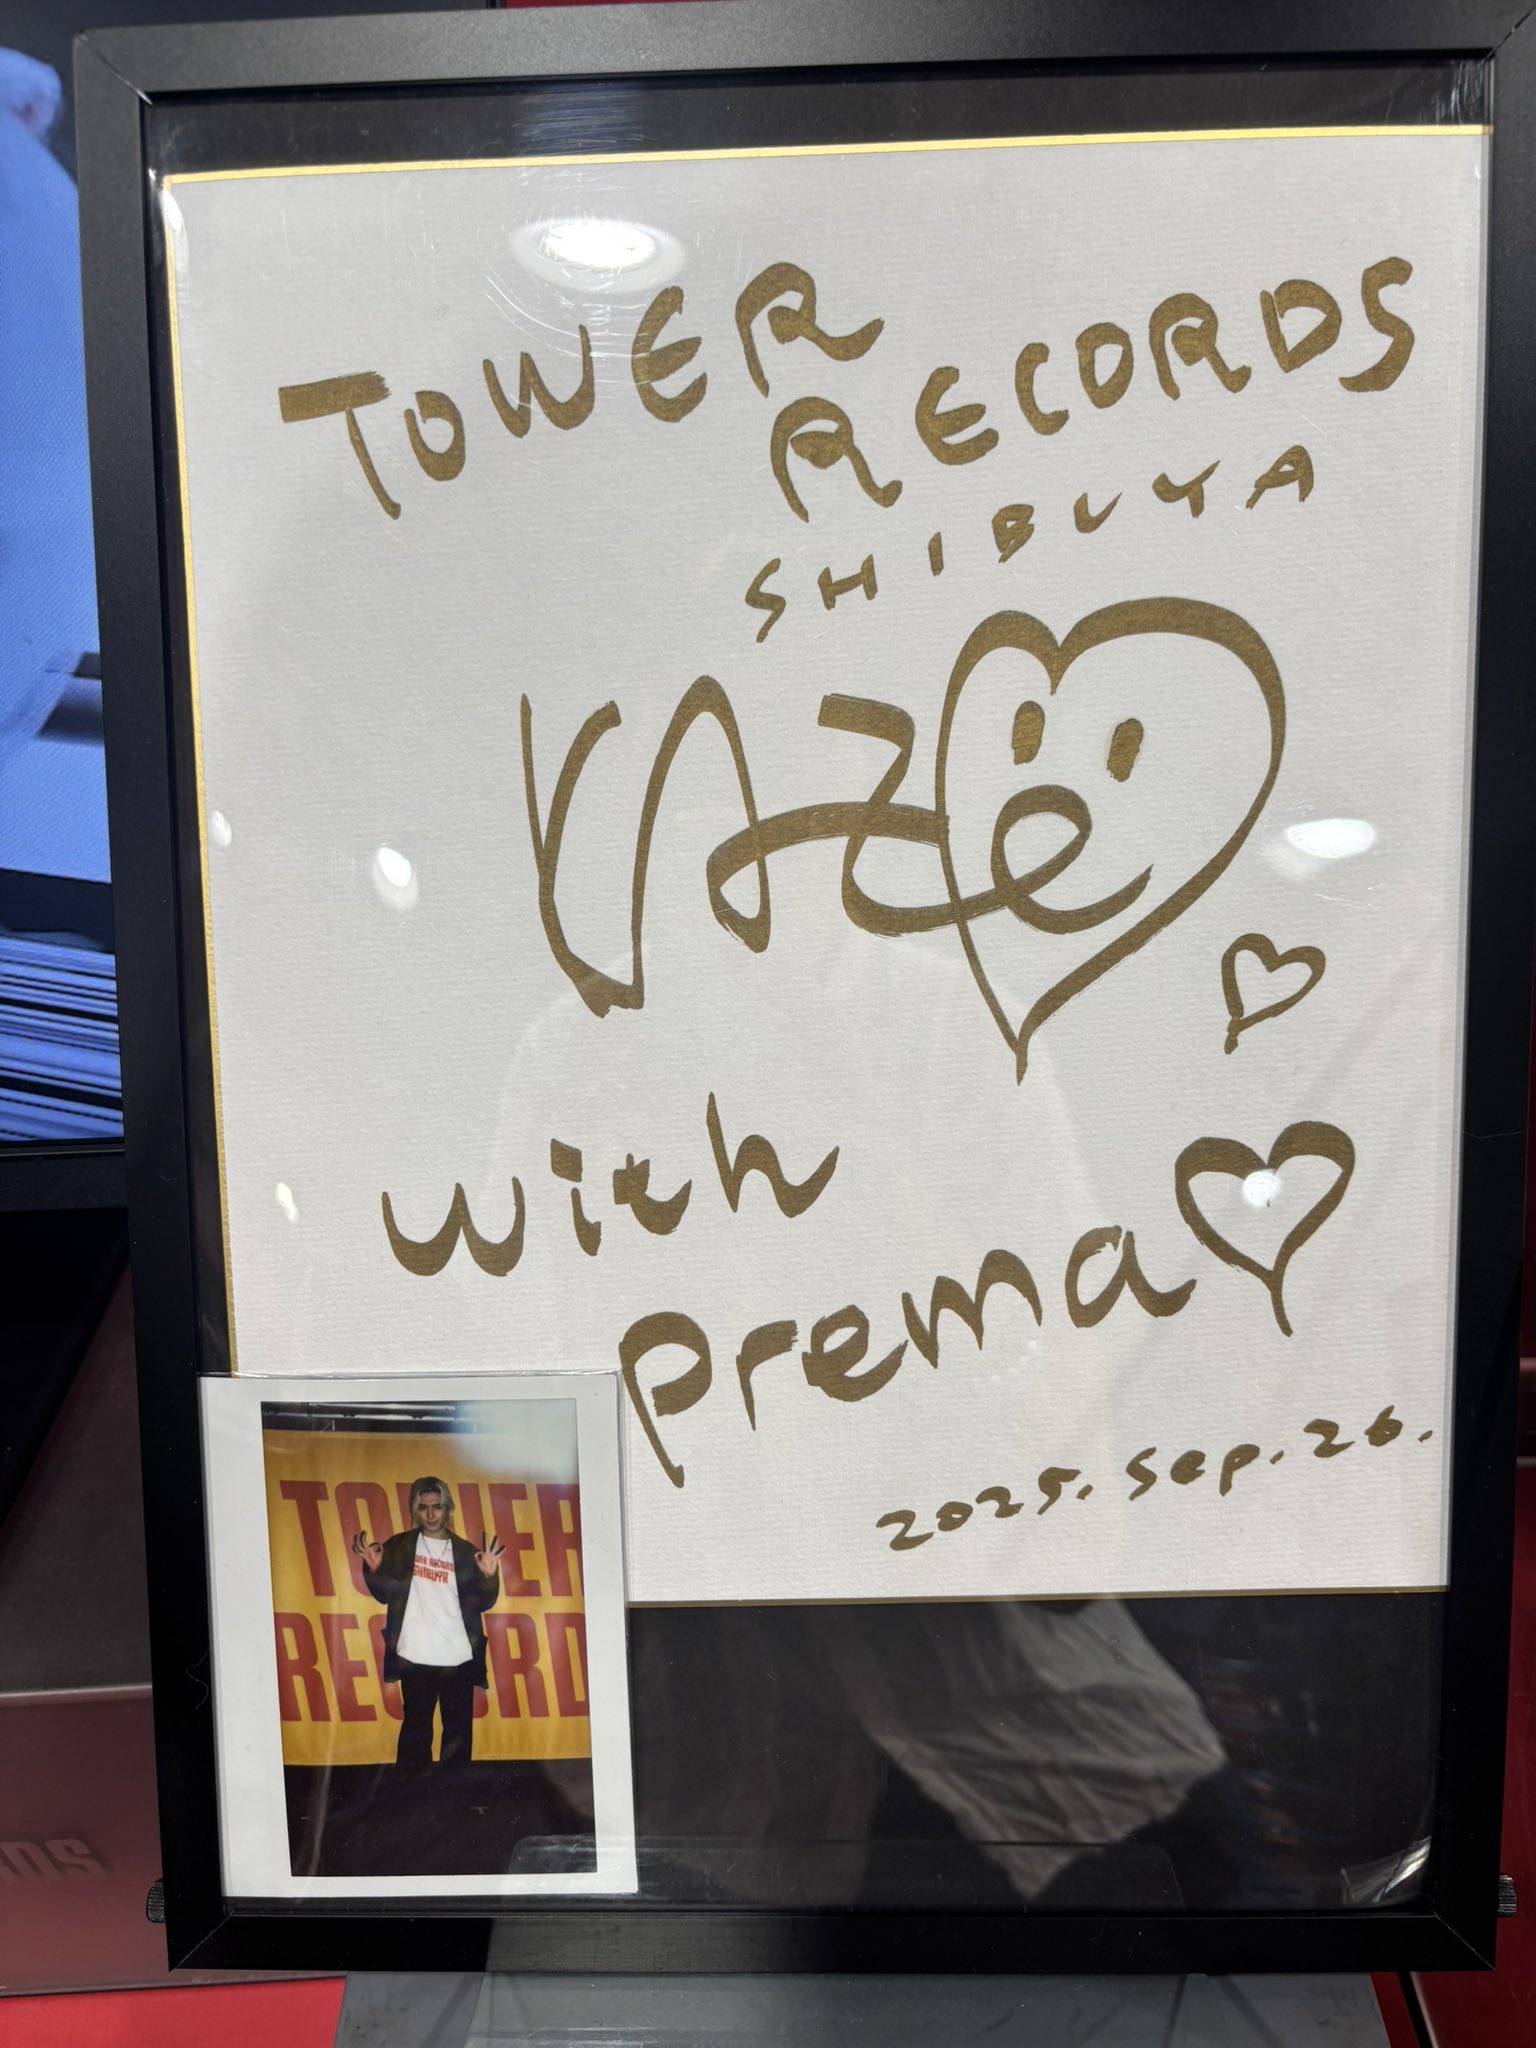 TOWER
RECORDS
SHIBUYA
KAZe
with
prema
2025. Sep. 26.
TOWER
RECORD
SHIBUYA
TOWER
RECORD